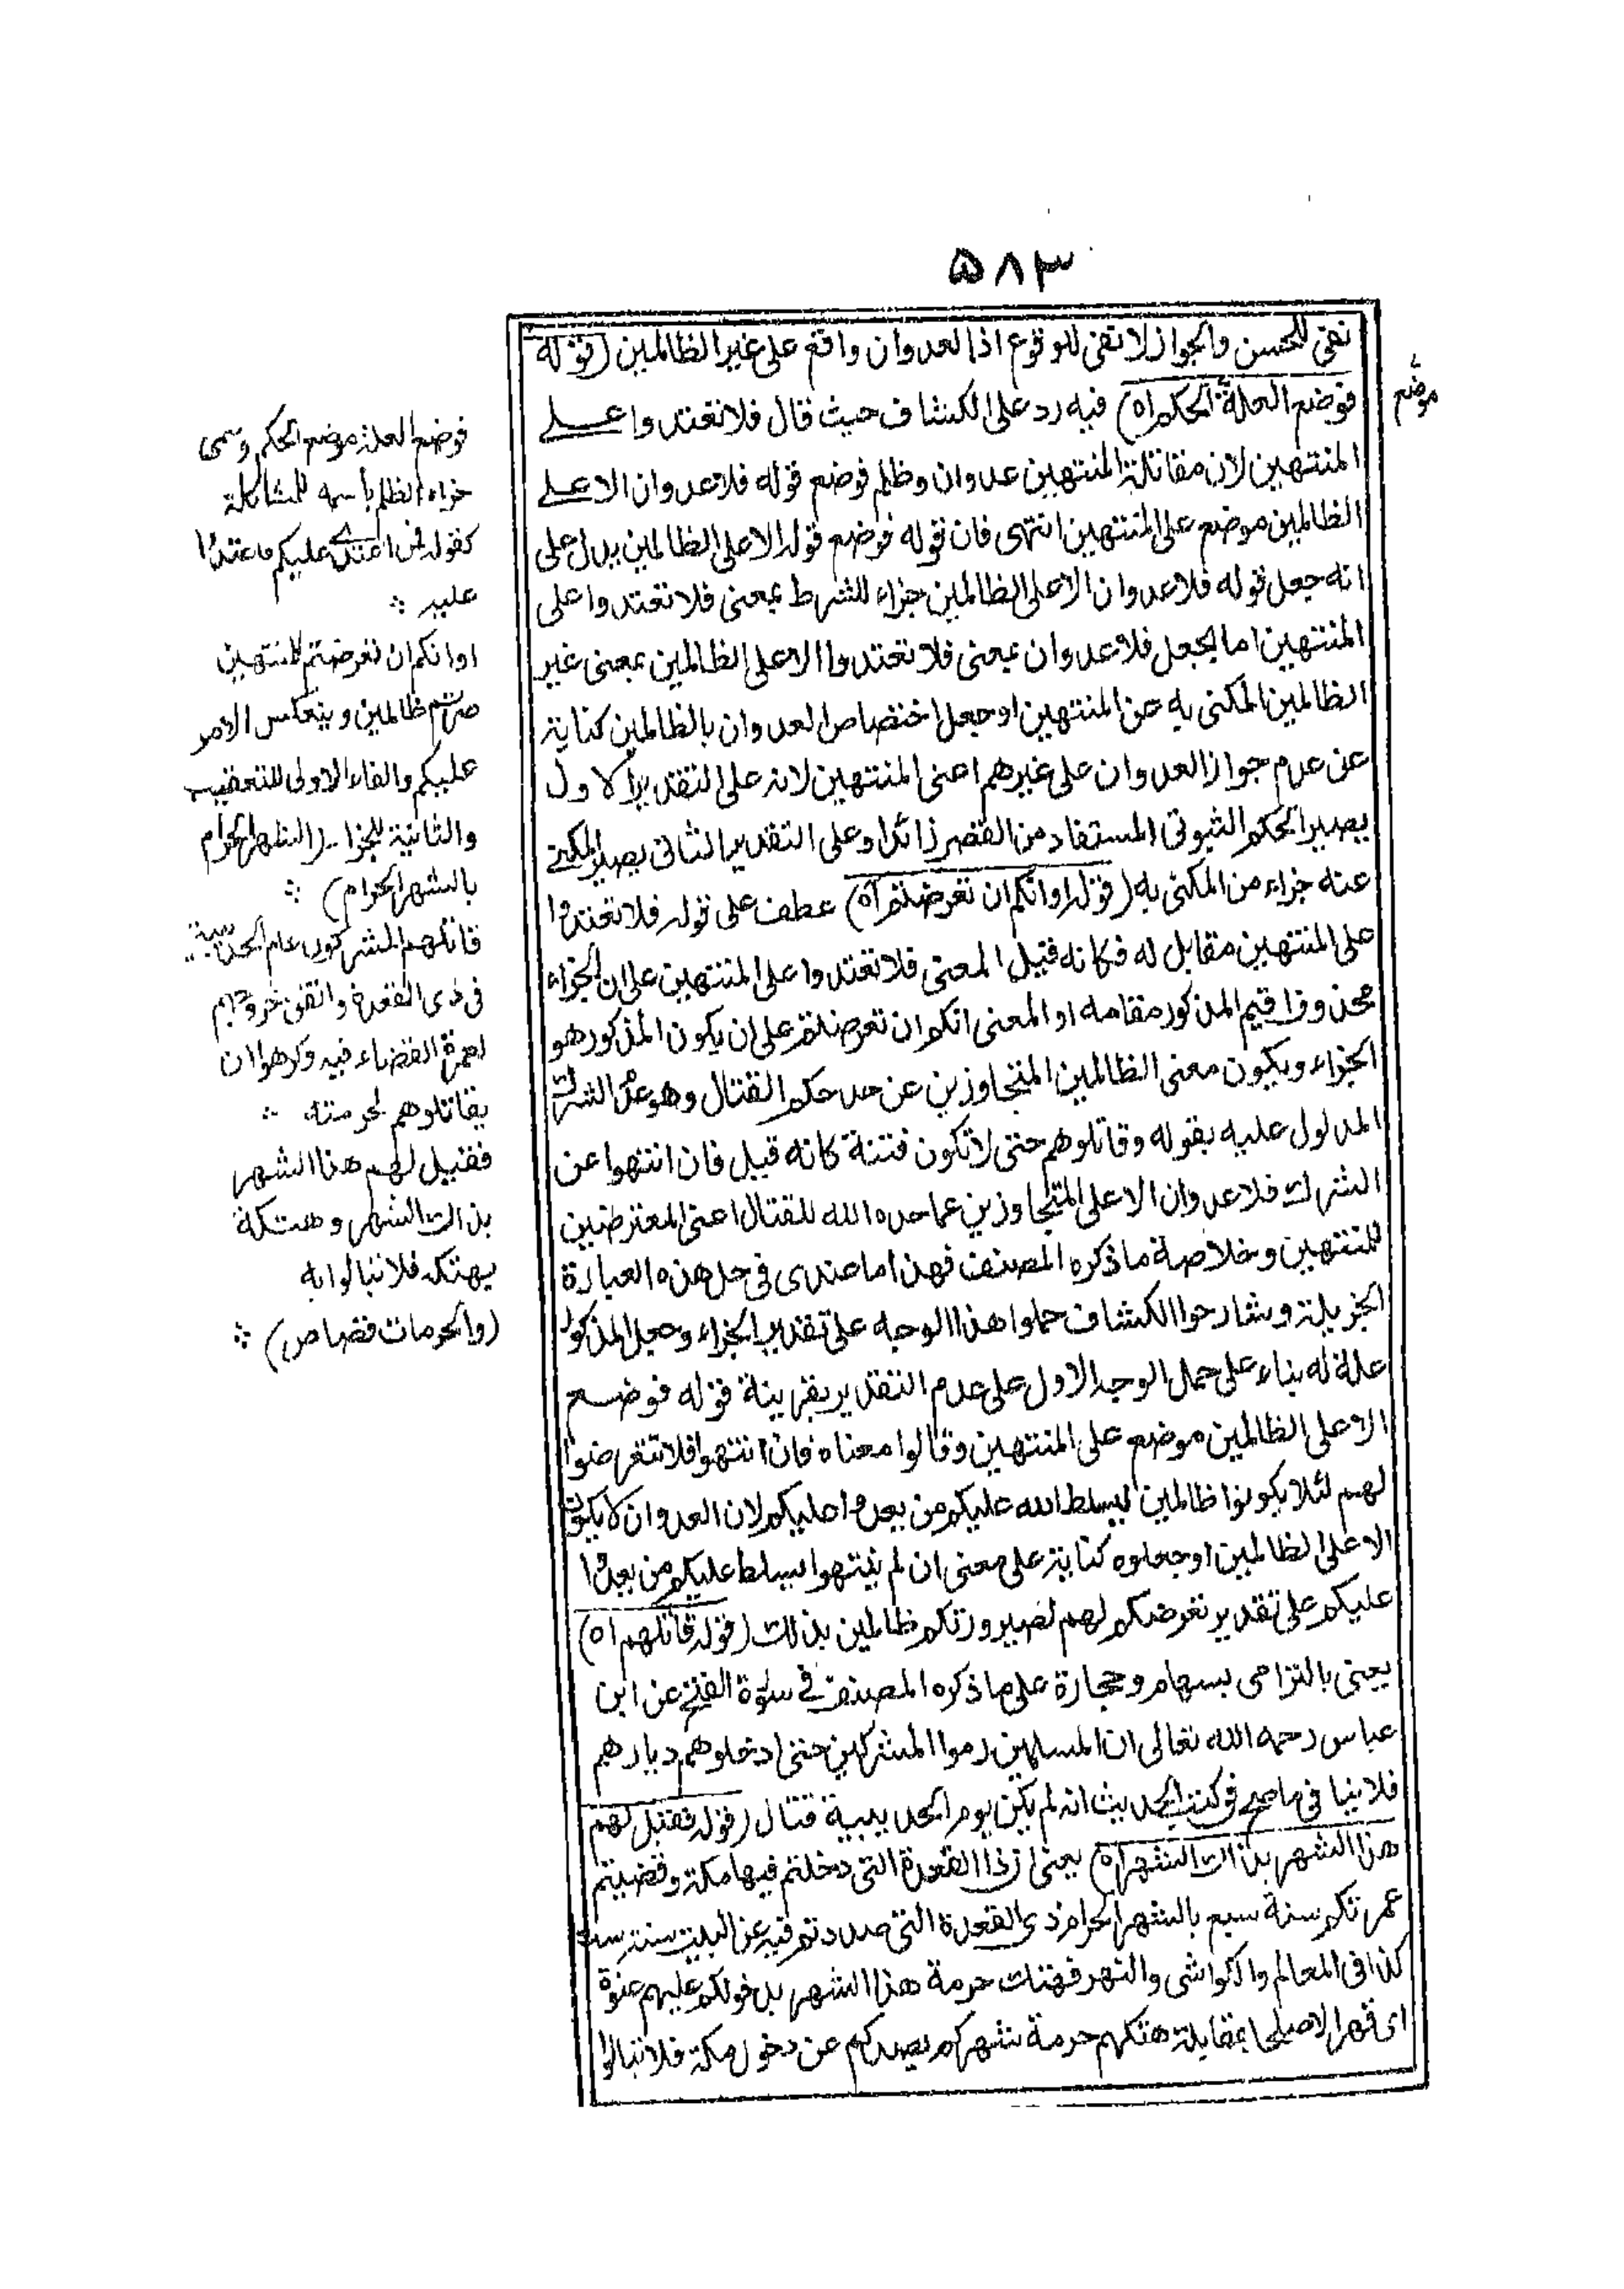 ۵۸۳
نفى للحسن والجواز لا نفى للوقوع اذ العدوان واقع على غير الظالمين (قوله
فوضع العلة الحكم اه) فيه رد على الكشاف حيث قال فلا تعتدوا على
موضع
المنتهين لان مقاتلة المنتهين عدوان وظلم فوضع قوله فلا عدوان الا على
الظالمين موضع على المنتهين انتهى فان قوله فوضع قوله الا على الظالمين يدل على
انه جعل قوله فلا عدوان الا على الظالمين جزاء للشرط بمعنى فلا تعتدوا على
المنتهين اما بجعل فلا عدوان بمعنى فلا تعتدوا الا على الظالمين بمعنى غير
الظالمين المكنى به عن المنتهين او جعل اختصاص العدوان بالظالمين كناية
عن عدم جواز العدوان على غيرهم اعنى المنتهين لانه على التقدير الاول
يصير الحكم الثبوتى المستفاد من القصر زائدا وعلى التقدير الثانى يصير المكنى
عنه جزاء من المكنى به (قوله او انكم ان تعرضتم اه) عطف على قوله فلا تعتدوا
على المنتهين مقابل له فكانه قيل المعنى فلا تعتدوا على المنتهين على ان الجزاء
محذوف اقيم المذكور مقامه او المعنى انكم ان تعرضتم على ان يكون المذكور هو
الجزاء ويكون معنى الظالمين المتجاوزين عن حد حكم القتال وهو الشرك
المدلول عليه بقوله وقاتلوهم حتى لا تكون فتنة كانه قيل فان انتهوا عن
الشرك فلا عدوان الا على المتجاوزين عما حده الله للقتال اعنى المعترضين
للمنتهين وخلاصة ما ذكره المصنف فهذا ما عندى فى حل هذه العبارة
الجزيلة وشارحوا الكشاف حملوا هذا الوجه على تقدير الجزاء وجعل المذكور
علة له بناء على حمل الوجه الاول على عدم التقدير بقرينة قوله فوضع
الا على الظالمين موضع على المنتهين وقالوا معناه فان انتهوا فلا تتعرضوا
لهم لئلا يكونوا ظالمين ليسلط الله عليكم من يعدوا عليكم لان العدوان لا يكون
الا على الظالمين او جعلوه كناية على معنى ان لم ينتهوا يسلط عليكم من يعدوا
عليكم على تقدير تعرضكم لهم لصيرورتكم ظالمين بذلك (قوله قاتلهم اه)
يعنى بالترامى بسهام وحجارة على ما ذكره المصنف فى سورة الفتح عن ابن
عباس رحمه الله تعالى ان المسلمين رموا المشركين حتى ادخلوهم ديارهم
فلا ينافى ما صح فى كتب الحديث انه لم يكن يوم الحديبية قتال (قوله فقيل لهم
هذا الشهر بذاك الشهر اه) يعنى ان ذا القعدة التى دخلتم فيها مكة وقضيتم
عمرتكم سنة سبع بالشهر الحرام ذى القعدة التى صددتم فيه عن البيت سنة ست
كذا فى المعالم والكواشى والنهر فهتك حرمة هذا الشهر بدخولكم عليهم عنوة
اى قهرا لا صلحا بمقابلة هتكهم حرمة شهركم بصدكم عن دخول مكة فلا تبالوا
فوضع العلة موضع الحكم وسمى
جزاء الظلم باسمه للمشاكلة
كقوله فمن اعتدى عليكم فاعتدوا
عليه
او انكم ان تعرضتم للمنتهين
صرتم ظالمين وينعكس الامر
عليكم والفاء الاولى للتعقيب
والثانية للجزاء (الشهر الحرام
بالشهر الحرام)
قاتلهم المشركون عام الحديبية
فى ذى القعدة واتفق خروجهم
لعمرة القضاء فيه وكرهوا ان
يقاتلوهم لحرمته
فقيل لهم هذا الشهر
بذاك الشهر وهتكه
بهتكه فلا تبالوا به
(والحرمات قصاص)